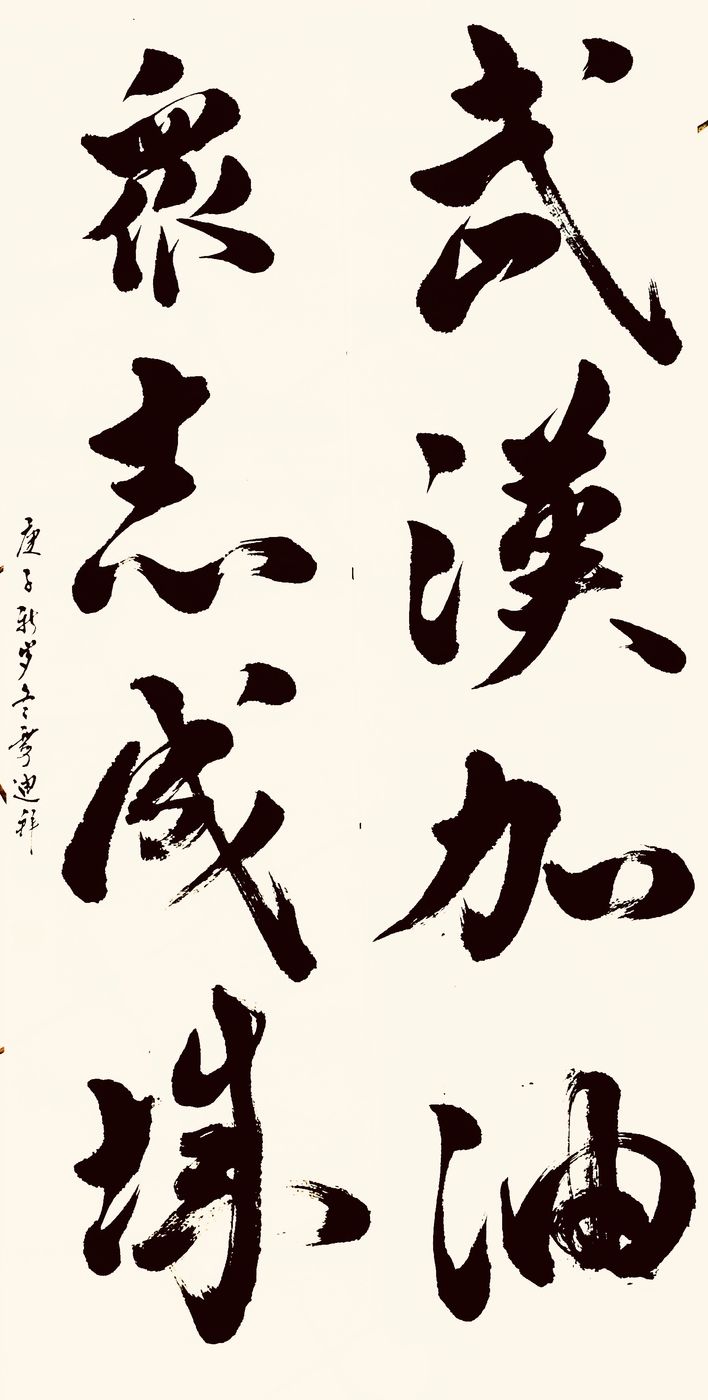 武漢加油
衆志成城
庚子新岁 迪拜